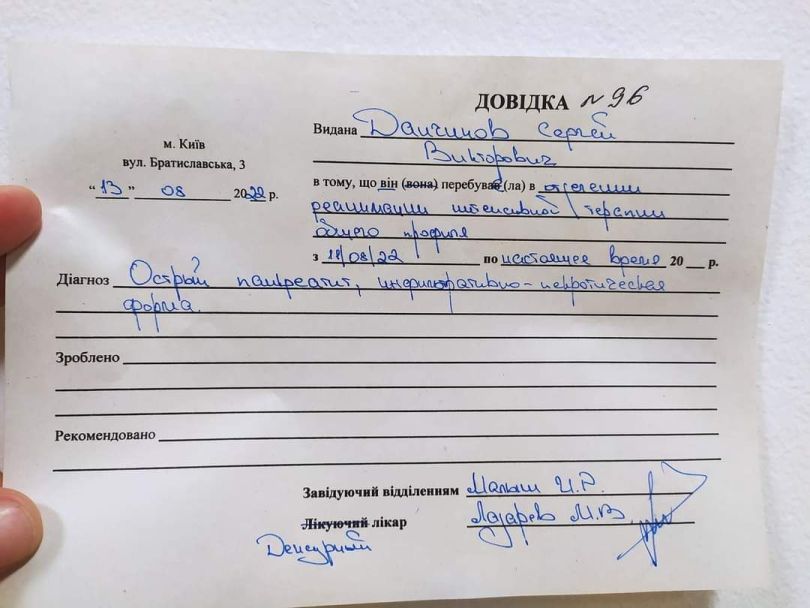 ДОВІДКА №96
м. Київ
вул. Братиславська, 3
“13” 08 2022 р.
Видана Данчинов Сергей
Викторович
в тому, що він (вона) перебував(ла) в отделении
реанимации интенсивной терапии
общего профиля
з 11/08/22 по настоящее время 20 р.
Діагноз Острый панкреатит, инфильтративно-некротическая
форма.
Зроблено
Рекомендовано
Завідуючий відділенням Малыш И.Р.
Лікуючий лікар Лазарев М.В.
Дежурный